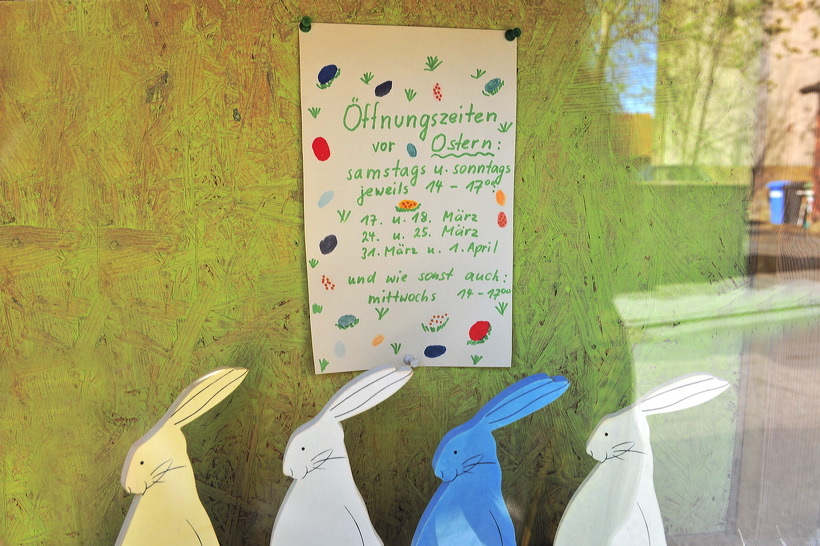 Öffnungszeiten
vor Ostern:
samstags u. sonntags
jeweils 14 - 17⁰⁰:
17. u. 18. März
24. u. 25. März
31. März u. 1. April
und wie sonst auch:
mittwochs 14 - 17⁰⁰